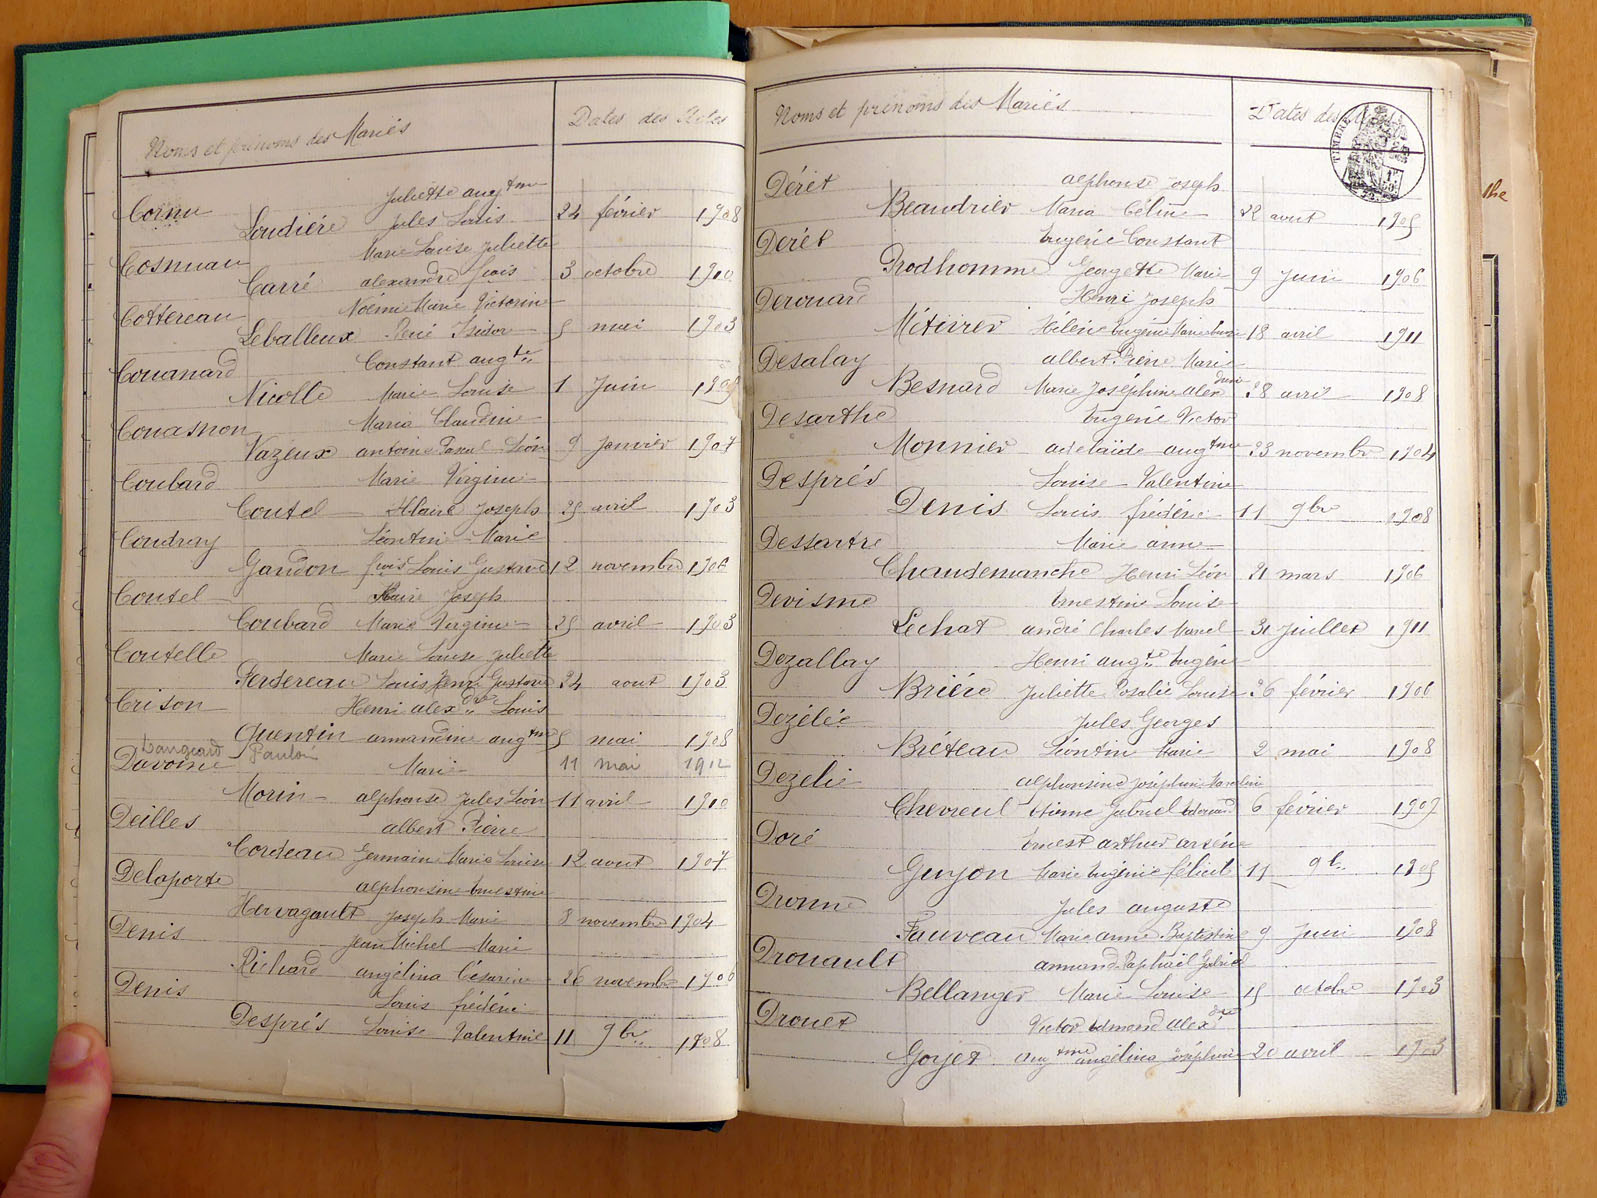 Noms et prénoms des Mariés Dates des Actes
Cornu Juliette augtine
Loudière Jules Louis 24 février 1908
Cosnuau Marie Louise Juliette
Carré alexandre frçois 3 octobre 1910
Cottereau Noémi Marie Victorine
Leballeux René Isidor 5 mai 1903
Couanard Constant augte
Nicolle Marie Louise 1 Juin
Couasnon Maria Claudine
Vazeux antoine Pascal Léon 9 Janvier 1907
Coubard Marie Virginie
Coutel Hlaire Joseph 25 avril 1903
Coudray Léontine Marie
Gandon frçois Louis Gustave 12 novembre 1906
Coutel Hlaire Joseph
Coubard Marie Virginie 25 avril 1903
Coutelle Marie Louise Juliette
Ferdereau Louis Henri Gustave 24 aout 1903
Crison Henri alexdre Louis
Quentin armandine augtine 5 mai 1908
Langeard Paulin 11 mai 1912
Davoine Marie
Morin alphonse Jules Léon 11 avril 1910
Deilles albert Pierre
Cordeau Germain Marie Louise 12 aout 1907
Delaporte alphonsine Ernestine
Hervagault Joseph Marie 8 novembre 1904
Denis Jean Michel Marie
Richard angélina Césarine 26 novembre 1906
Denis Louis frédéric
Després Louise Valentine 11 9bre 1908
Noms et prénoms des Mariés Dates des
TIMBRE
Dérét alphonse Joseph
Beaudrier Maria Céline 22 aout 1905
Derét Eugène Constant
Prodhomme Georgette Marie 9 Juin 1906
Derouard Henri Joseph
Métivier Hélène Eugénie Marie 18 avril 1911
Desalay albert Pierre Marie
Besnard Marie Joséphine alexdrine 28 avril 1908
Desarthe Eugène Victor
Monnier adelaïde augtine 23 novembre 1904
Després Louise Valentine
Denis Louis frédéric 11 9bre 1908
Dessartre Marie anne
Chaudemanche Henri Léon 21 mars 1906
Devisme Ernestine Louise
Lechat andré Charles Marcel 31 Juillet 1911
Dezallay Henri augte Eugène
Brière Juliette Rosalie Louise 26 février 1906
Dezélée Jules Georges
Bréteau Léontine Marie 2 mai 1908
Dezelée alphonsine Joséphine
Chevreul Etienne Gabriel Edouard 6 février 1907
Doré Ernest arthur arsène
Guyon Marie Eugénie félicité 11 9bre 1905
Dronne Jules auguste
Fauveau Marie anne Baptistine 9 Juin 1908
Drouault armand Raphaël Gabriel
Bellanger Marie Louise 15 octobre 1903
Drouet Victor Edmond alexdre
Goyet augtine angélina Joséphine 20 avril 1903